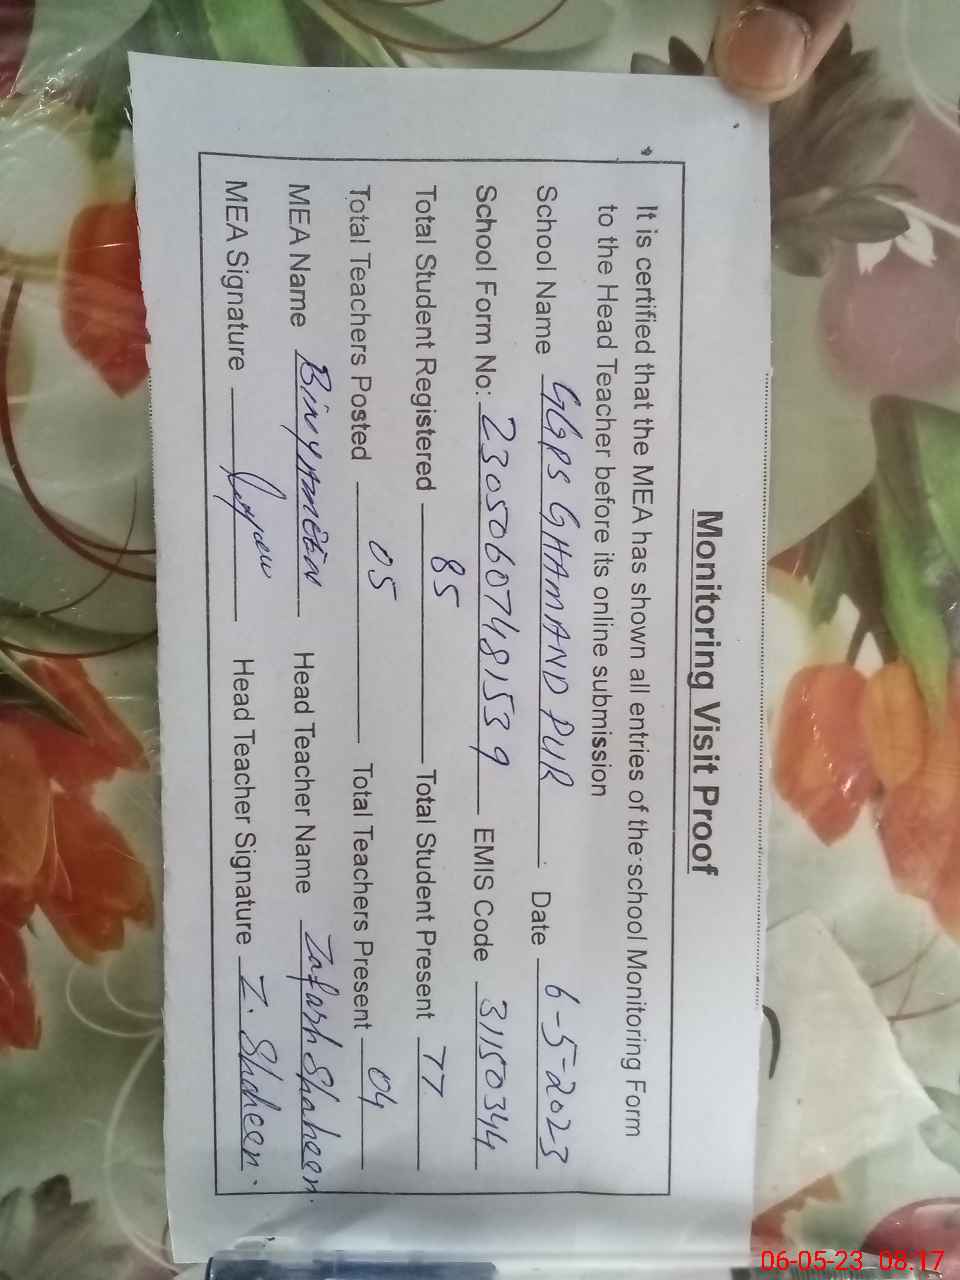 Monitoring Visit Proof
It is certified that the MEA has shown all entries of the school Monitoring Form
to the Head Teacher before its online submission
School Name GGPS GHAMAND PUR Date 6-5-2023
School Form No: 23050607481539 EMIS Code 31150344
Total Student Registered 85 Total Student Present 77
Total Teachers Posted 05 Total Teachers Present 04
MEA Name Head Teacher Name Zafash Shaheen.
MEA Signature Head Teacher Signature Z. Shaheen.
06-05-23 08:17